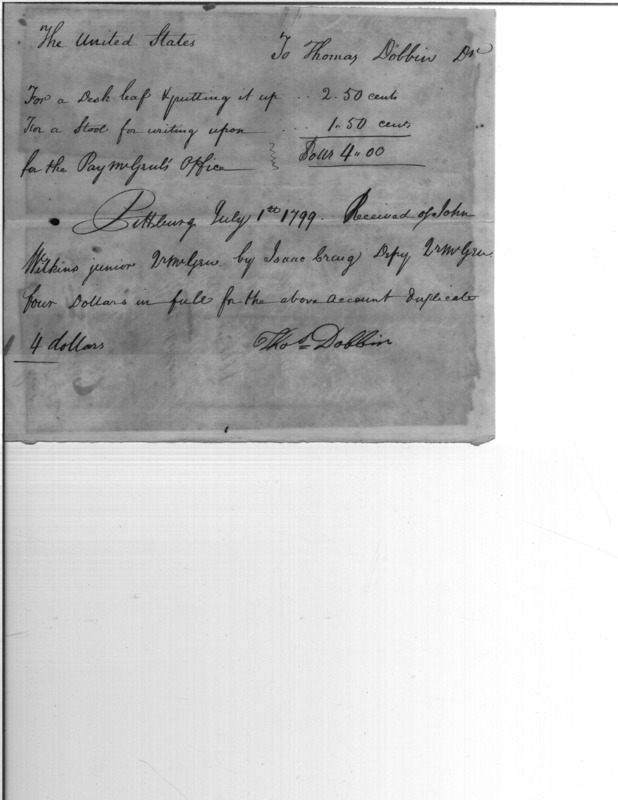 The United States To Thomas Dobbin Dr
For a Desk leaf & putting it up .. 2.50 cents
For a Stool for writing upon ... 1.50 cents
for the Pay Mr Genl's Office Dollrs 4.00
Pittsburg July 1st 1799. Received of John
Wilkins junior Qr Mr Gen. by Isaac Craig Depy Qr Mr Gen.
four Dollars in full for the above account duplicate
4 dollars Thos Dobbin